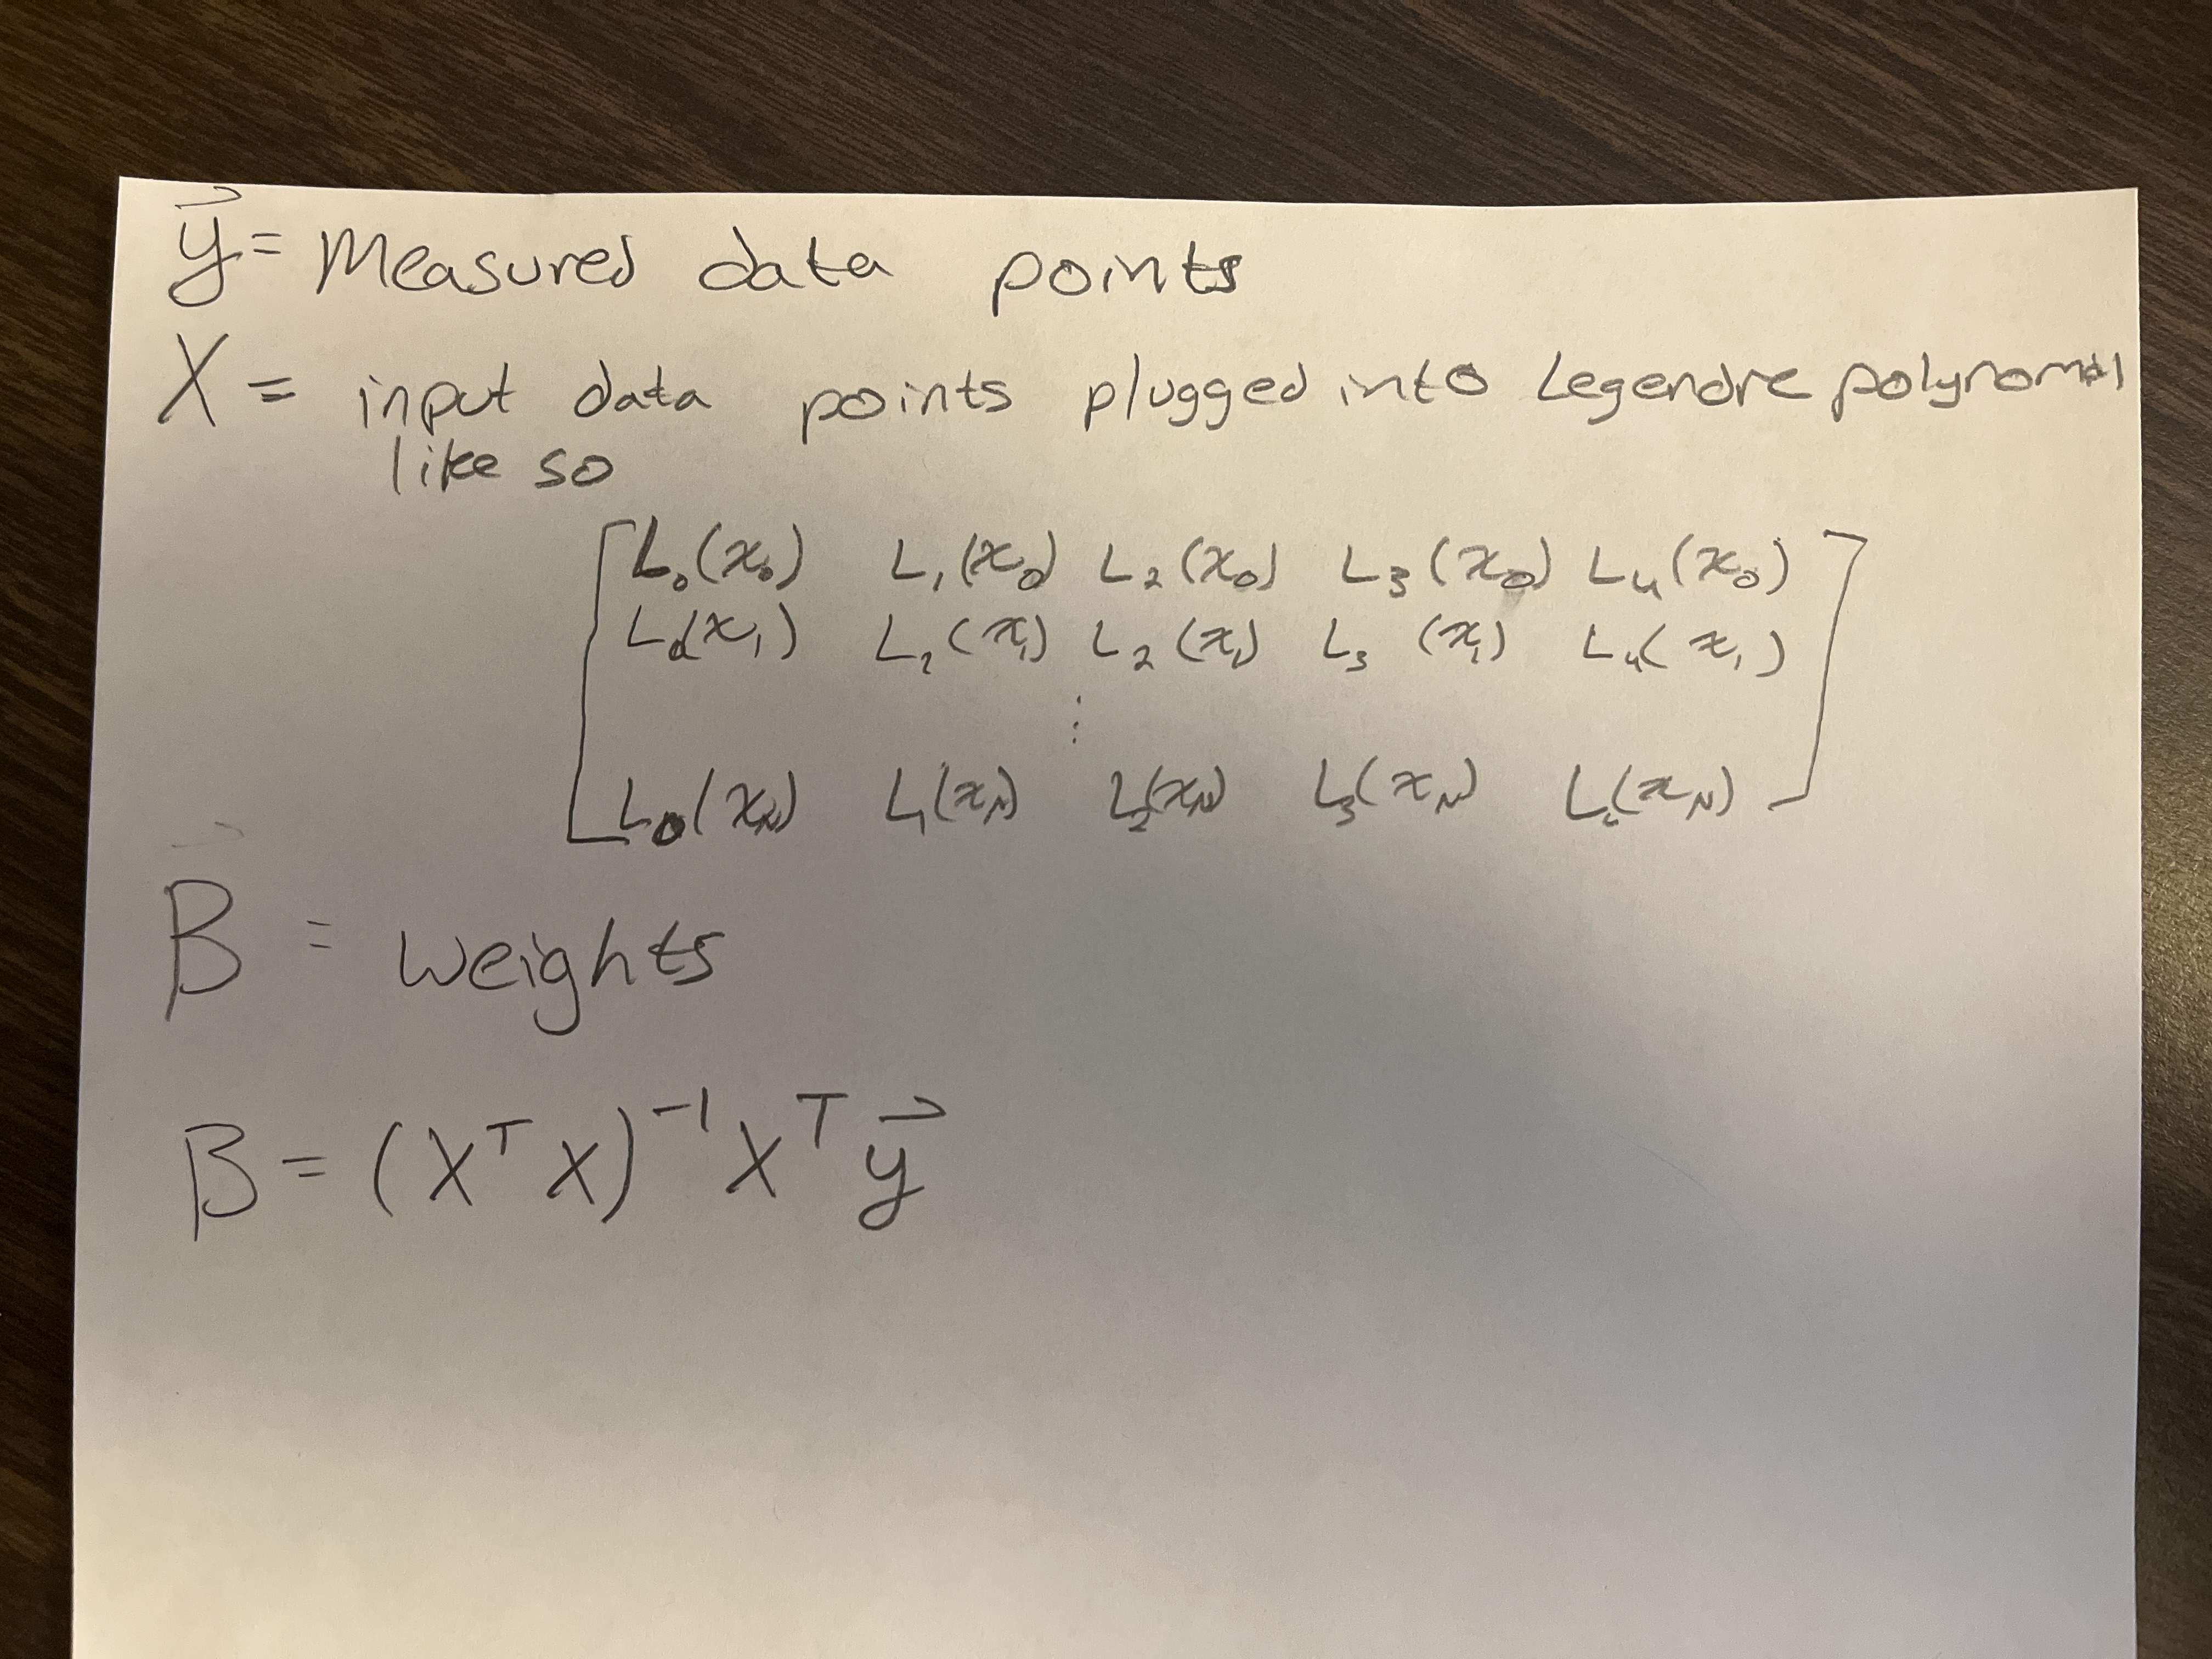 y⃗ = Measured data points
X = input data points plugged into Legendre polynomial
like so
L₀(x₀) L₁(x₀) L₂(x₀) L₃(x₀) L₄(x₀)
L₀(x₁) L₁(x₁) L₂(x₁) L₃(x₁) L₄(x₁)
⋮
L₀(x_N) L₁(x_N) L₂(x_N) L₃(x_N) L₄(x_N)
β⃗ = weights
β = (XᵀX)⁻¹Xᵀy⃗